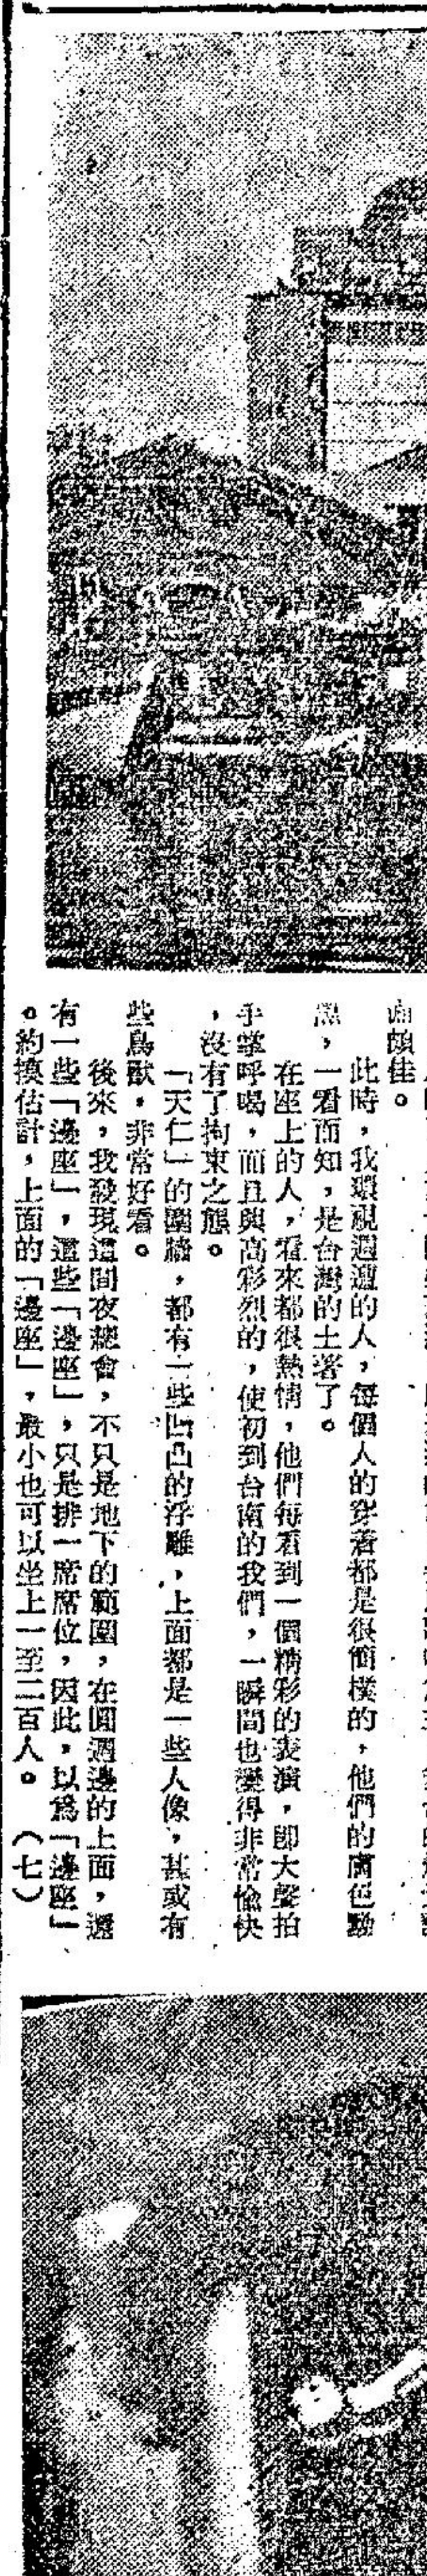 頗佳。
此時，我環視週遭的人，每個人的穿着都是很簡樸的，他們的膚色黝
黑，一看而知，是台灣的土著了。
在座上的人，看來都很熱情，他們每看到一個精彩的表演，即大聲拍
手掌呼喝，而且興高彩烈的，使初到台南的我們，一瞬間也變得非常愉快
，沒有了拘束之態。
「天仁」的圍牆，都有一些凹凸的浮雕，上面都是一些人像，甚或有
些鳥獸，非常好看。
後來，我發現這間夜總會，不只是地下的範圍，在圓週邊的上面，還
有一些「邊座」，這些「邊座」，只是排一席席位，因此，以為「邊座」
。約摸估計，上面的「邊座」，最小也可以坐上一至二百人。　（七）